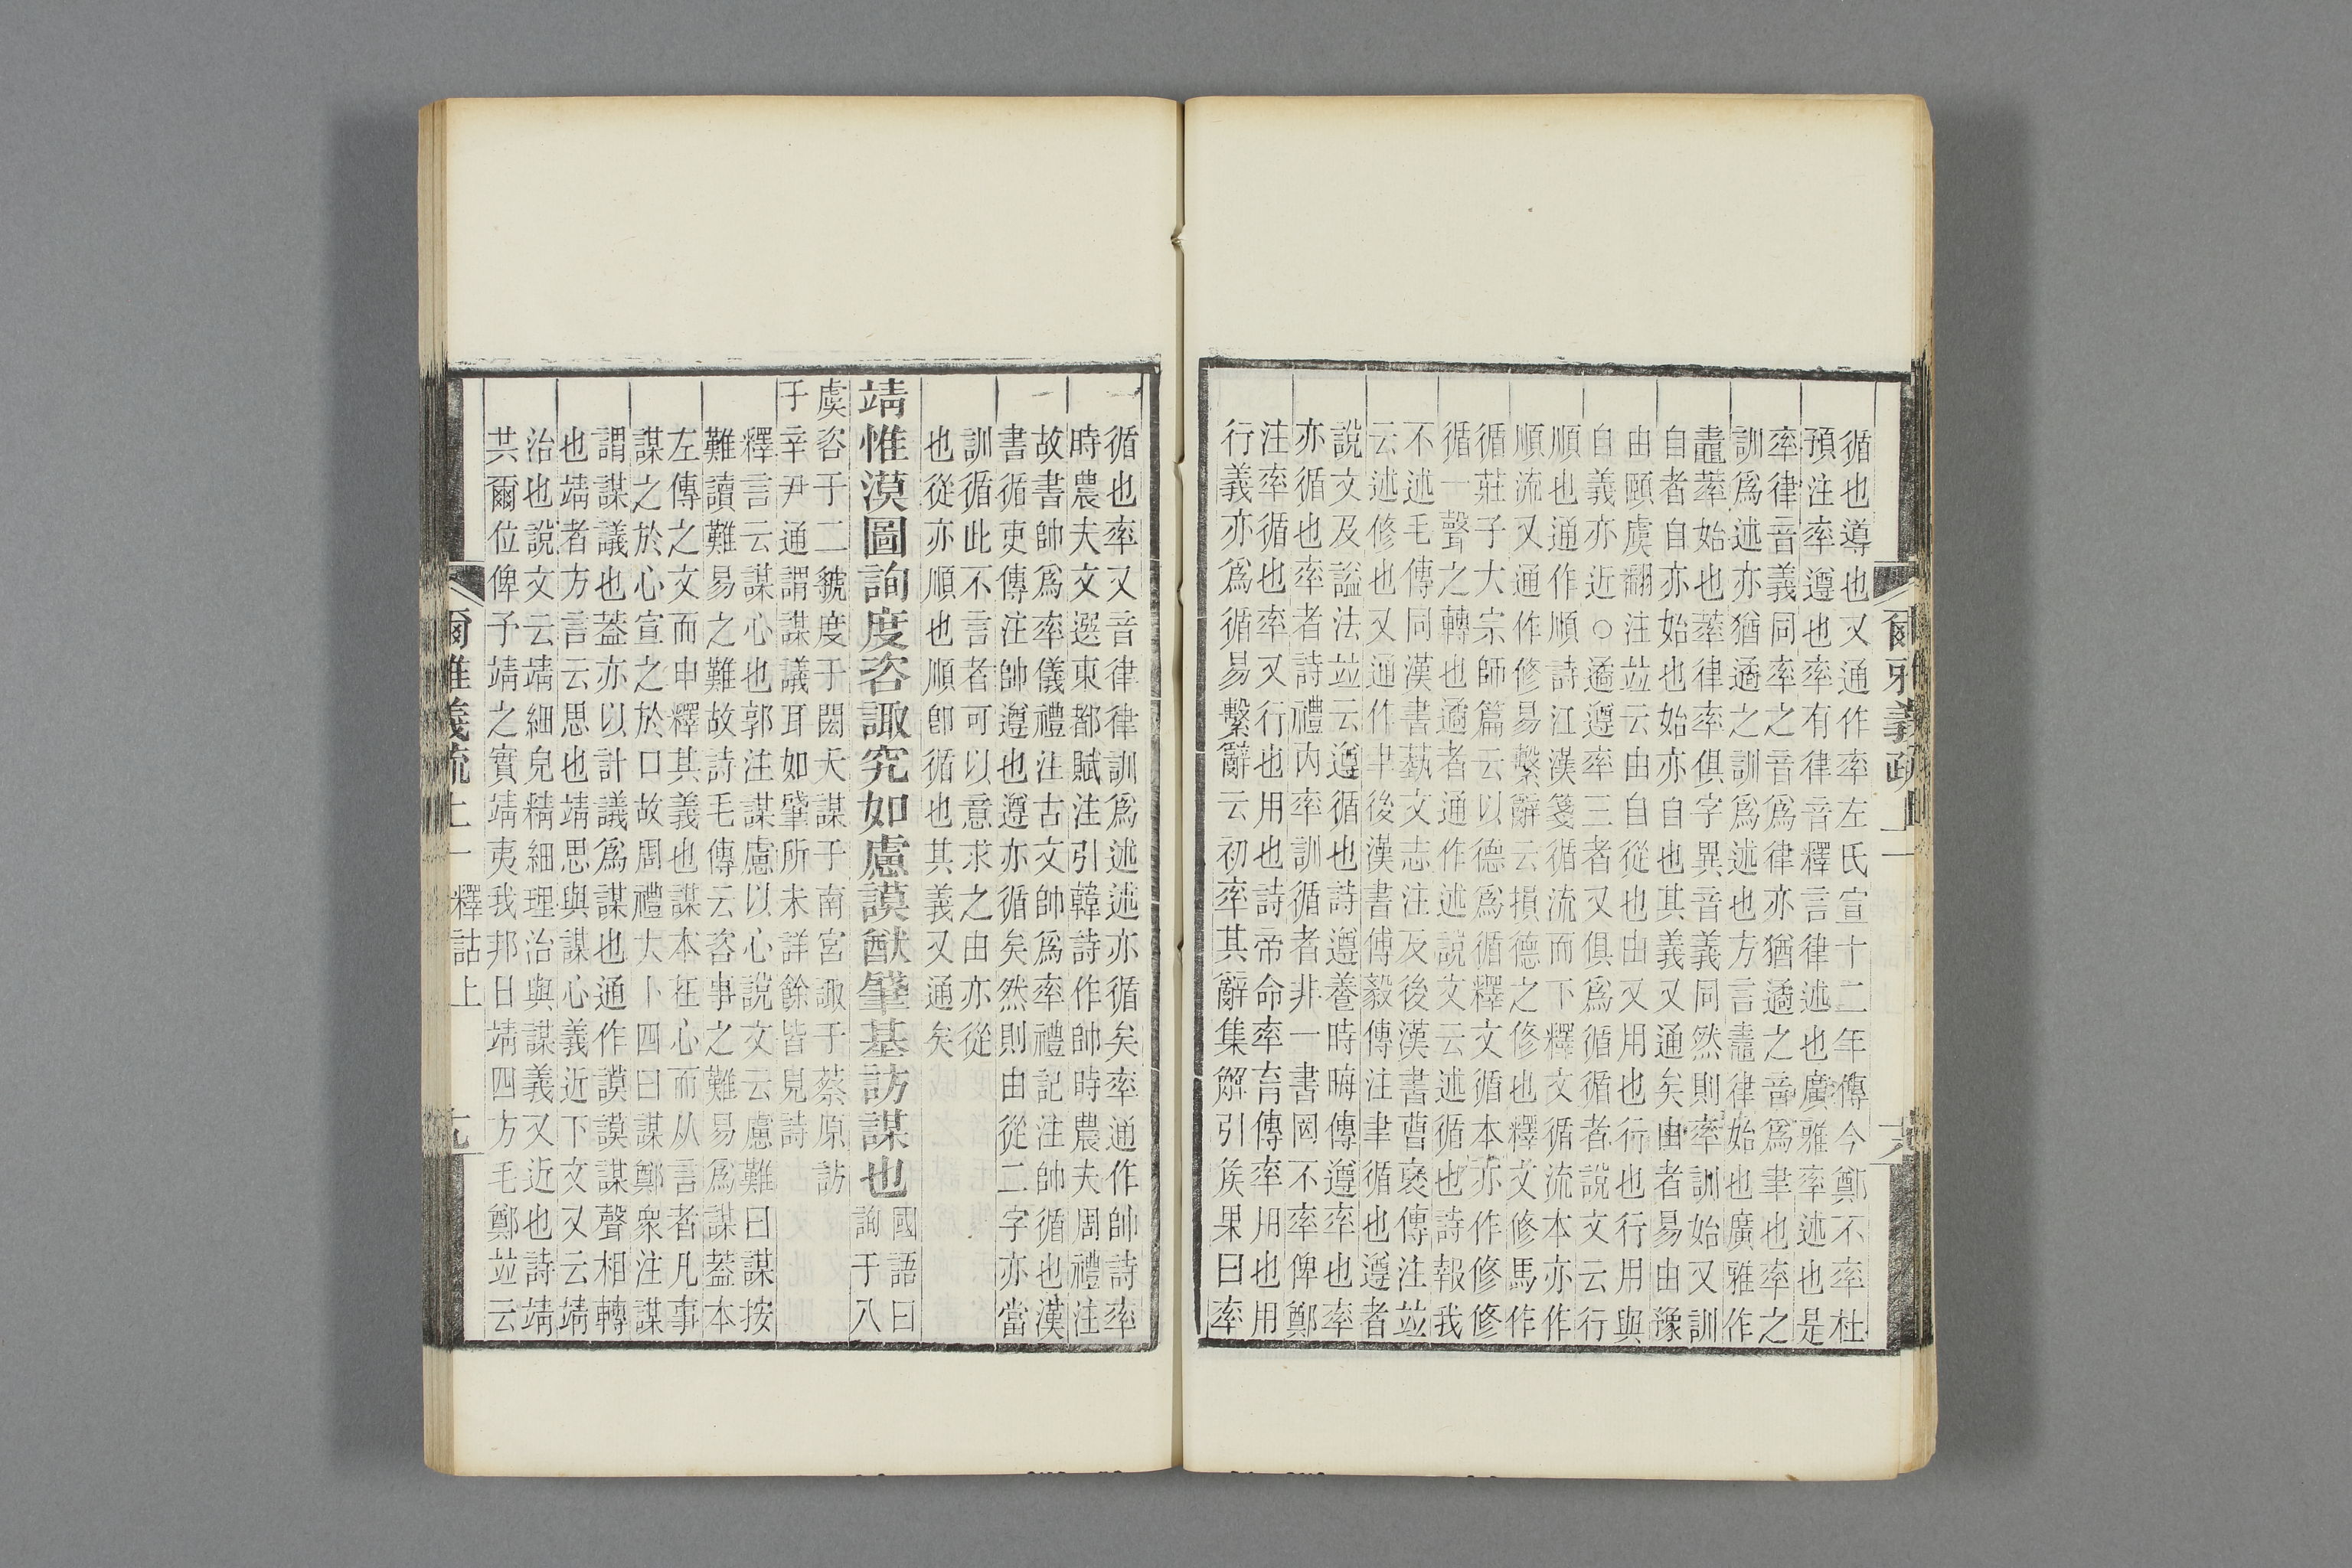 循也導也又通作率左氏宣十二年傳今鄭不率杜
預注率遵也率有律音釋言律述也廣雅率述也是
率律音義同率之音爲律亦猶遹之音爲聿也率之
訓爲述亦猶遹之訓爲述也方言䵻律始也廣雅作
䵻萃始也萃律率俱字異音義同然則率訓始又訓
自者自亦始也始亦自也其義又通矣由者易由豫
由頤虞翻注竝云由自從也由又用也行也行用與
自義亦近○遹遵率三者又俱爲循循者說文云行
順也通作順詩江漢箋循流而下釋文循流本亦作
順流又通作修易繫辭云損德之修也釋文修馬作
循莊子大宗師篇云以德爲循釋文循本亦作修修
循一聲之轉也遹者通作述說文云述循也詩報我
不述毛傳同漢書藝文志注及後漢書曹褒傳注竝
云述修也又通作聿後漢書傅毅傳注聿循也遵者
說文及謚法竝云遵循也詩遵養時晦傳遵率也率
亦循也率者詩禮內率訓循者非一書㒺不率俾鄭
注率循也率又行也用也詩帝命率育傳率用也用
行義亦爲循易繫辭云初率其辭集解引矦果曰率
爾雅義疏 上一 六
循也率又音律律訓爲述述亦循矣率通作帥詩率
時農夫文選東都賦注引韓詩作帥時農夫周禮注
故書帥爲率儀禮注古文帥爲率禮記注帥循也漢
書循吏傳注帥遵也遵亦循矣然則由從二字亦當
訓循此不言者可以意求之由亦從
也從亦順也順卽循也其義又通矣
靖惟漠圖詢度咨諏究如慮謨猷肈基訪謀也
國語曰
詢于八
虞咨于二虢度于閎夭謀于南宮諏于蔡原訪
于辛尹通謂謀議耳如肈所未詳餘皆見詩
釋言云謀心也郭注謀慮以心說文云慮難曰謀按
難讀難易之難故詩毛傳云咨事之難易爲謀葢本
左傳之文而申釋其義也謀本在心而从言者凡事
謀之於心宣之於口故周禮大卜四曰謀鄭衆注謀
謂謀議也葢亦以計議爲謀也通作謨謨謀聲相轉
也靖者方言云思也靖思與謀心義近下文又云靖
治也說文云靖細皃精細理治與謀義又近也詩靖
共爾位俾予靖之實靖夷我邦日靖四方毛鄭竝云
爾雅義疏 上一 釋詁上